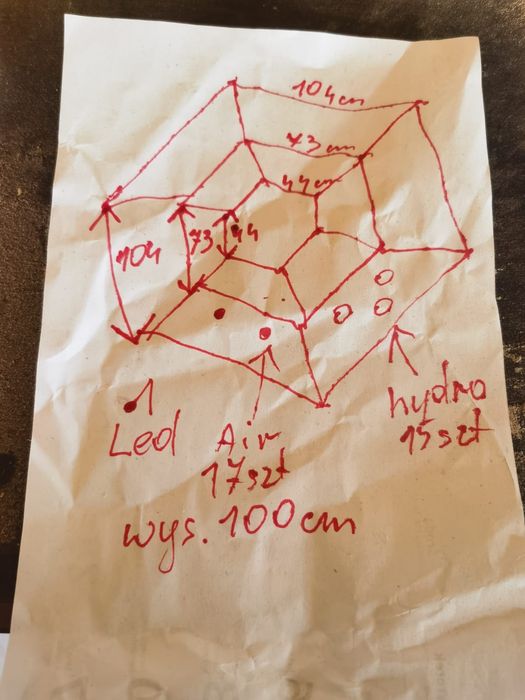 104cm
73cm
44cm
104
73
44
1
Led
Air
17szt
hydro
15szt
wys. 100cm